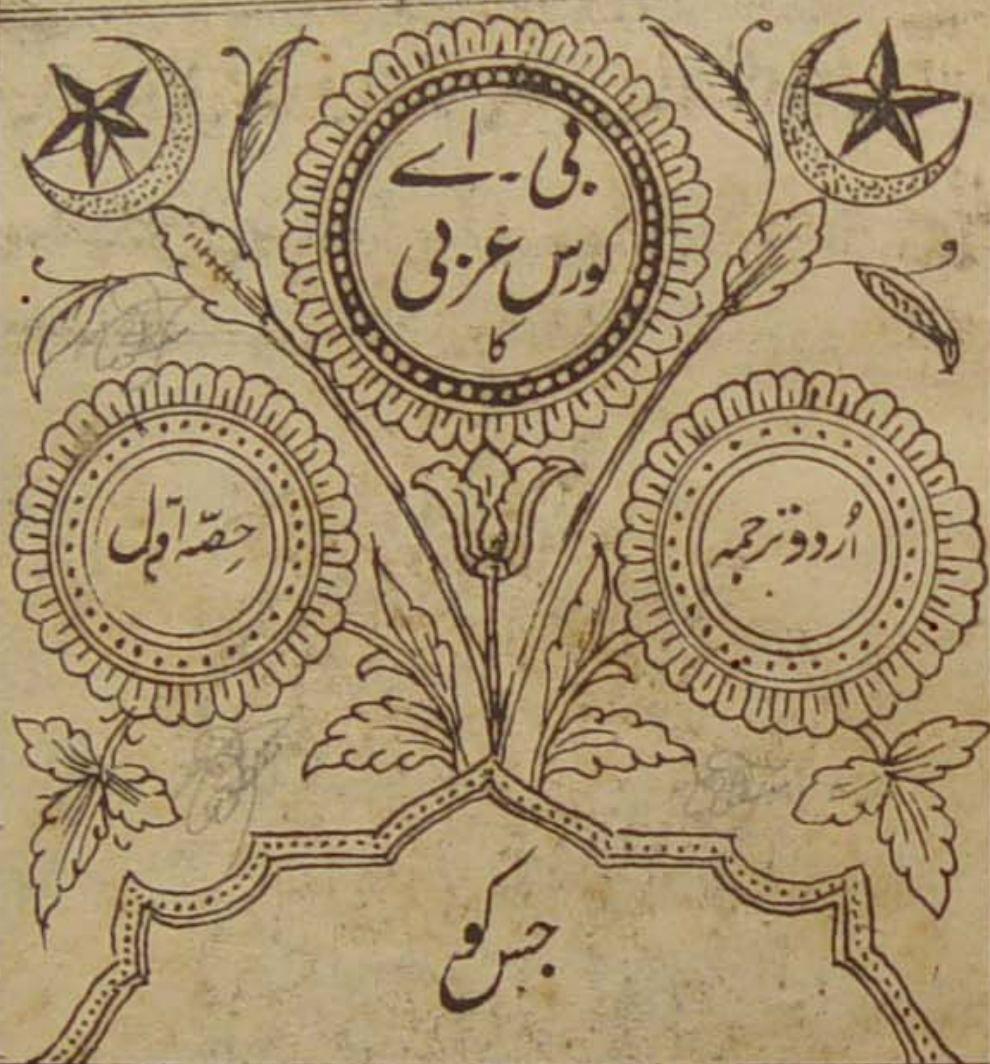 بی - اے
کورس عربی
کا
اُردو ترجمہ
حصّہ اول
جس کو